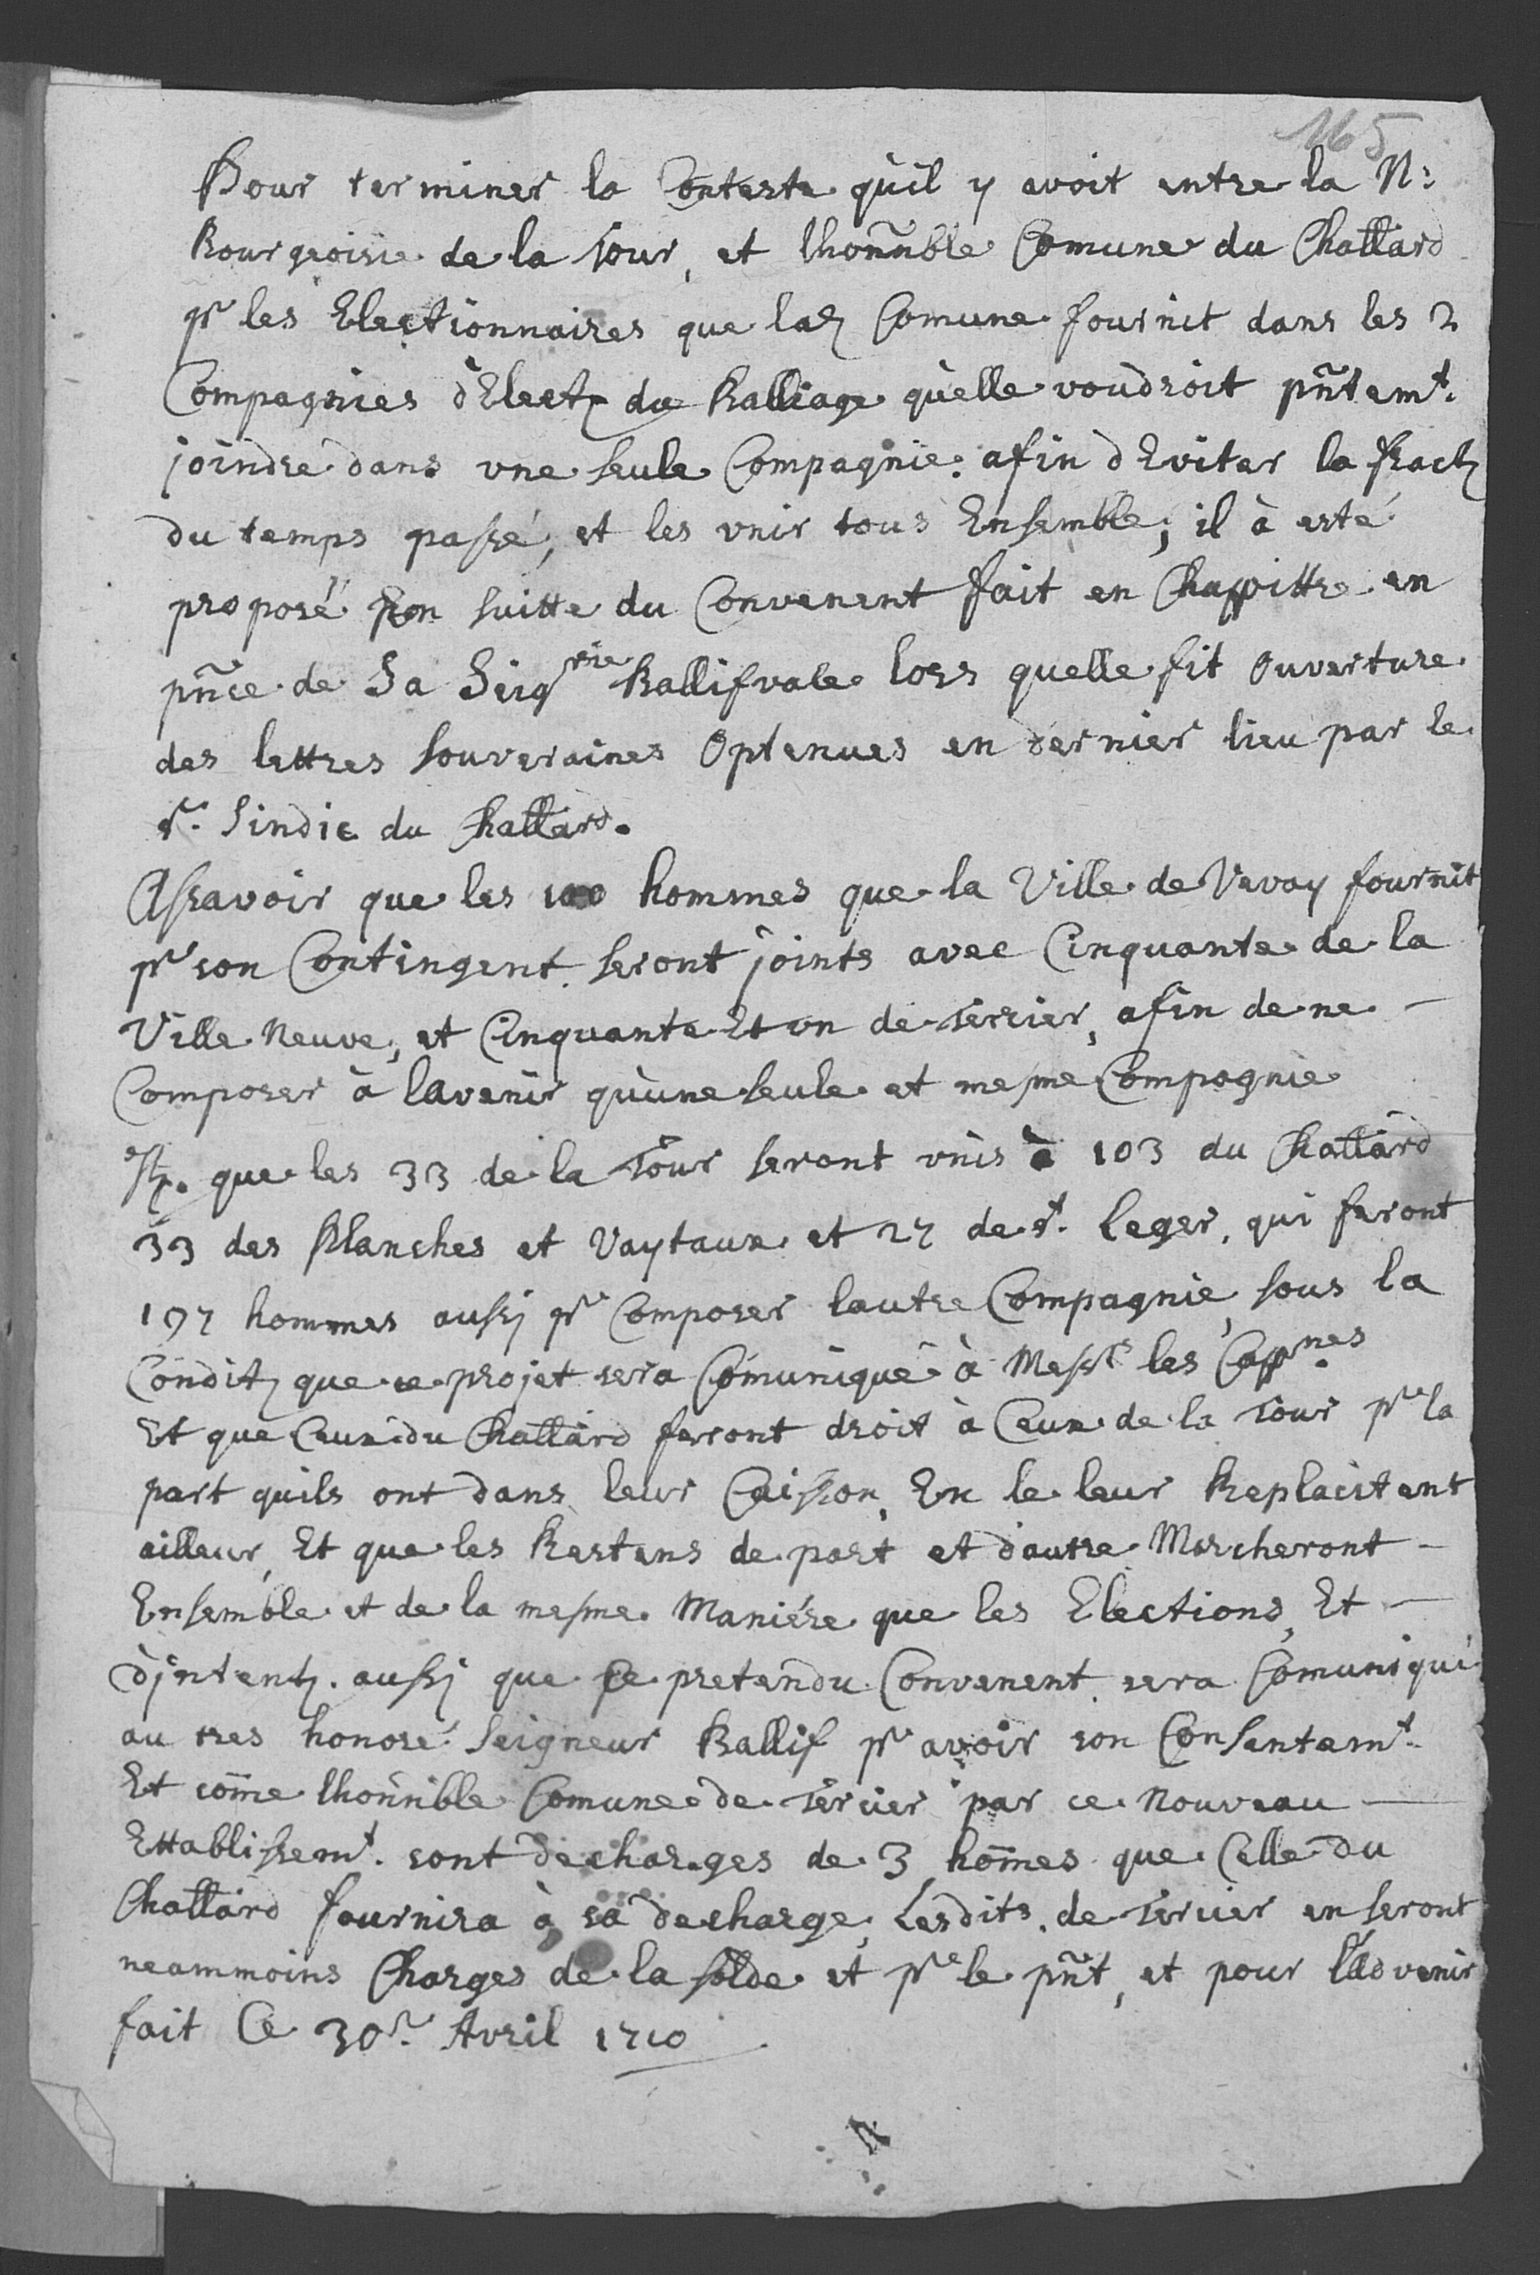 165
Pour terminer la Conteste qùil y avoit entre la N:
Bourgeoisie de la Tour, et lhoñnble Comune du Chattard
pr les Electionnaires que lad Comune fournit dans les 2
Compagnies d'Elect du Balliage qùelle voudroit pñtemt.
joindre dans vne seule Compagnie. afin d Eviter la fract
du temps passé, et les vnir tous Ensemble; il à esté
proposé En suitte du Convenent fait en Chappittre en
pñce de Sa Seigrie Ballifvale lors quelle fit Ouverture
des lettres souveraines Optenues en dernier lieu par le
Sr. Sindic du Chattard.
Assavoir que les 100 hommes que la Ville de Vevay fournit
pr son Contingent. seront joints avec Cinquante de la
Ville Neuve, et Cinquante Et vn de Tercier, afin de ne –
Composer à lavenir qùune seule et mesme Compagnie
It. que les 33 de la Tour seront vnis à 103 du Chattard
33 des Planches et Vaytaux et 27 de St. Leger, qui feront
197 hommes aussj pr Composer lautre Compagnie, sous la
Condit que ce projet sera Comuniqué à Messrs les Cappnes.
Et que Ceux du Chattard feront droit à Ceux de la Tour pr la
part quils ont dans leur Caisson, En le leur Replacitant
ailleur, Et que les Restans de part et dautre Marcheront –
Ensemble et de la mesme Maniére que les Elections, Et –
djntent. aussj que ce pretendu Convenent sera Comuniqué
au tres honoré Seigneur Ballif pr avoir son Consentemt.
Et come lhoñnible Comune de Tercier par ce Nouveau –
Ettablissemt. sont decharges de 3 homes que Celle du
Chattard fournira à sa decharge, Lesdits. de Tercier en seront
neammoins Charges de la solde et pr le pñt, et pour l'advenir
fait Ce 30e. Avril 1710